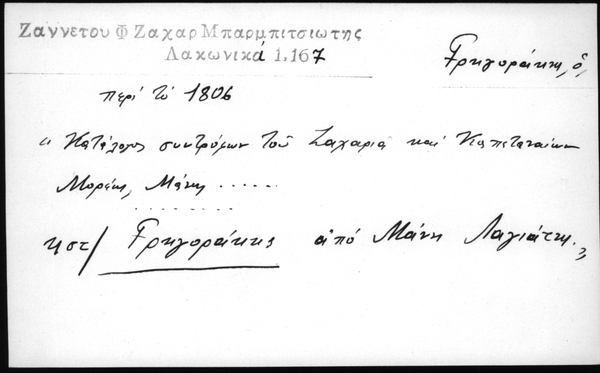 Ζαννετου Φ Ζαχαρ Μπαρμπιτσιωτης
Λακωνικά 1.167
Γρηγοράκης, ὁ,
περί τό 1806
"Κατάλογος συντρόφων τοῦ Ζαχαριᾶ καί Καπεταναίων
Μορέως, Μάνης .....
.........
ηστ/ Γρηγοράκης ἀπό Μάνη Λαγιάτης."